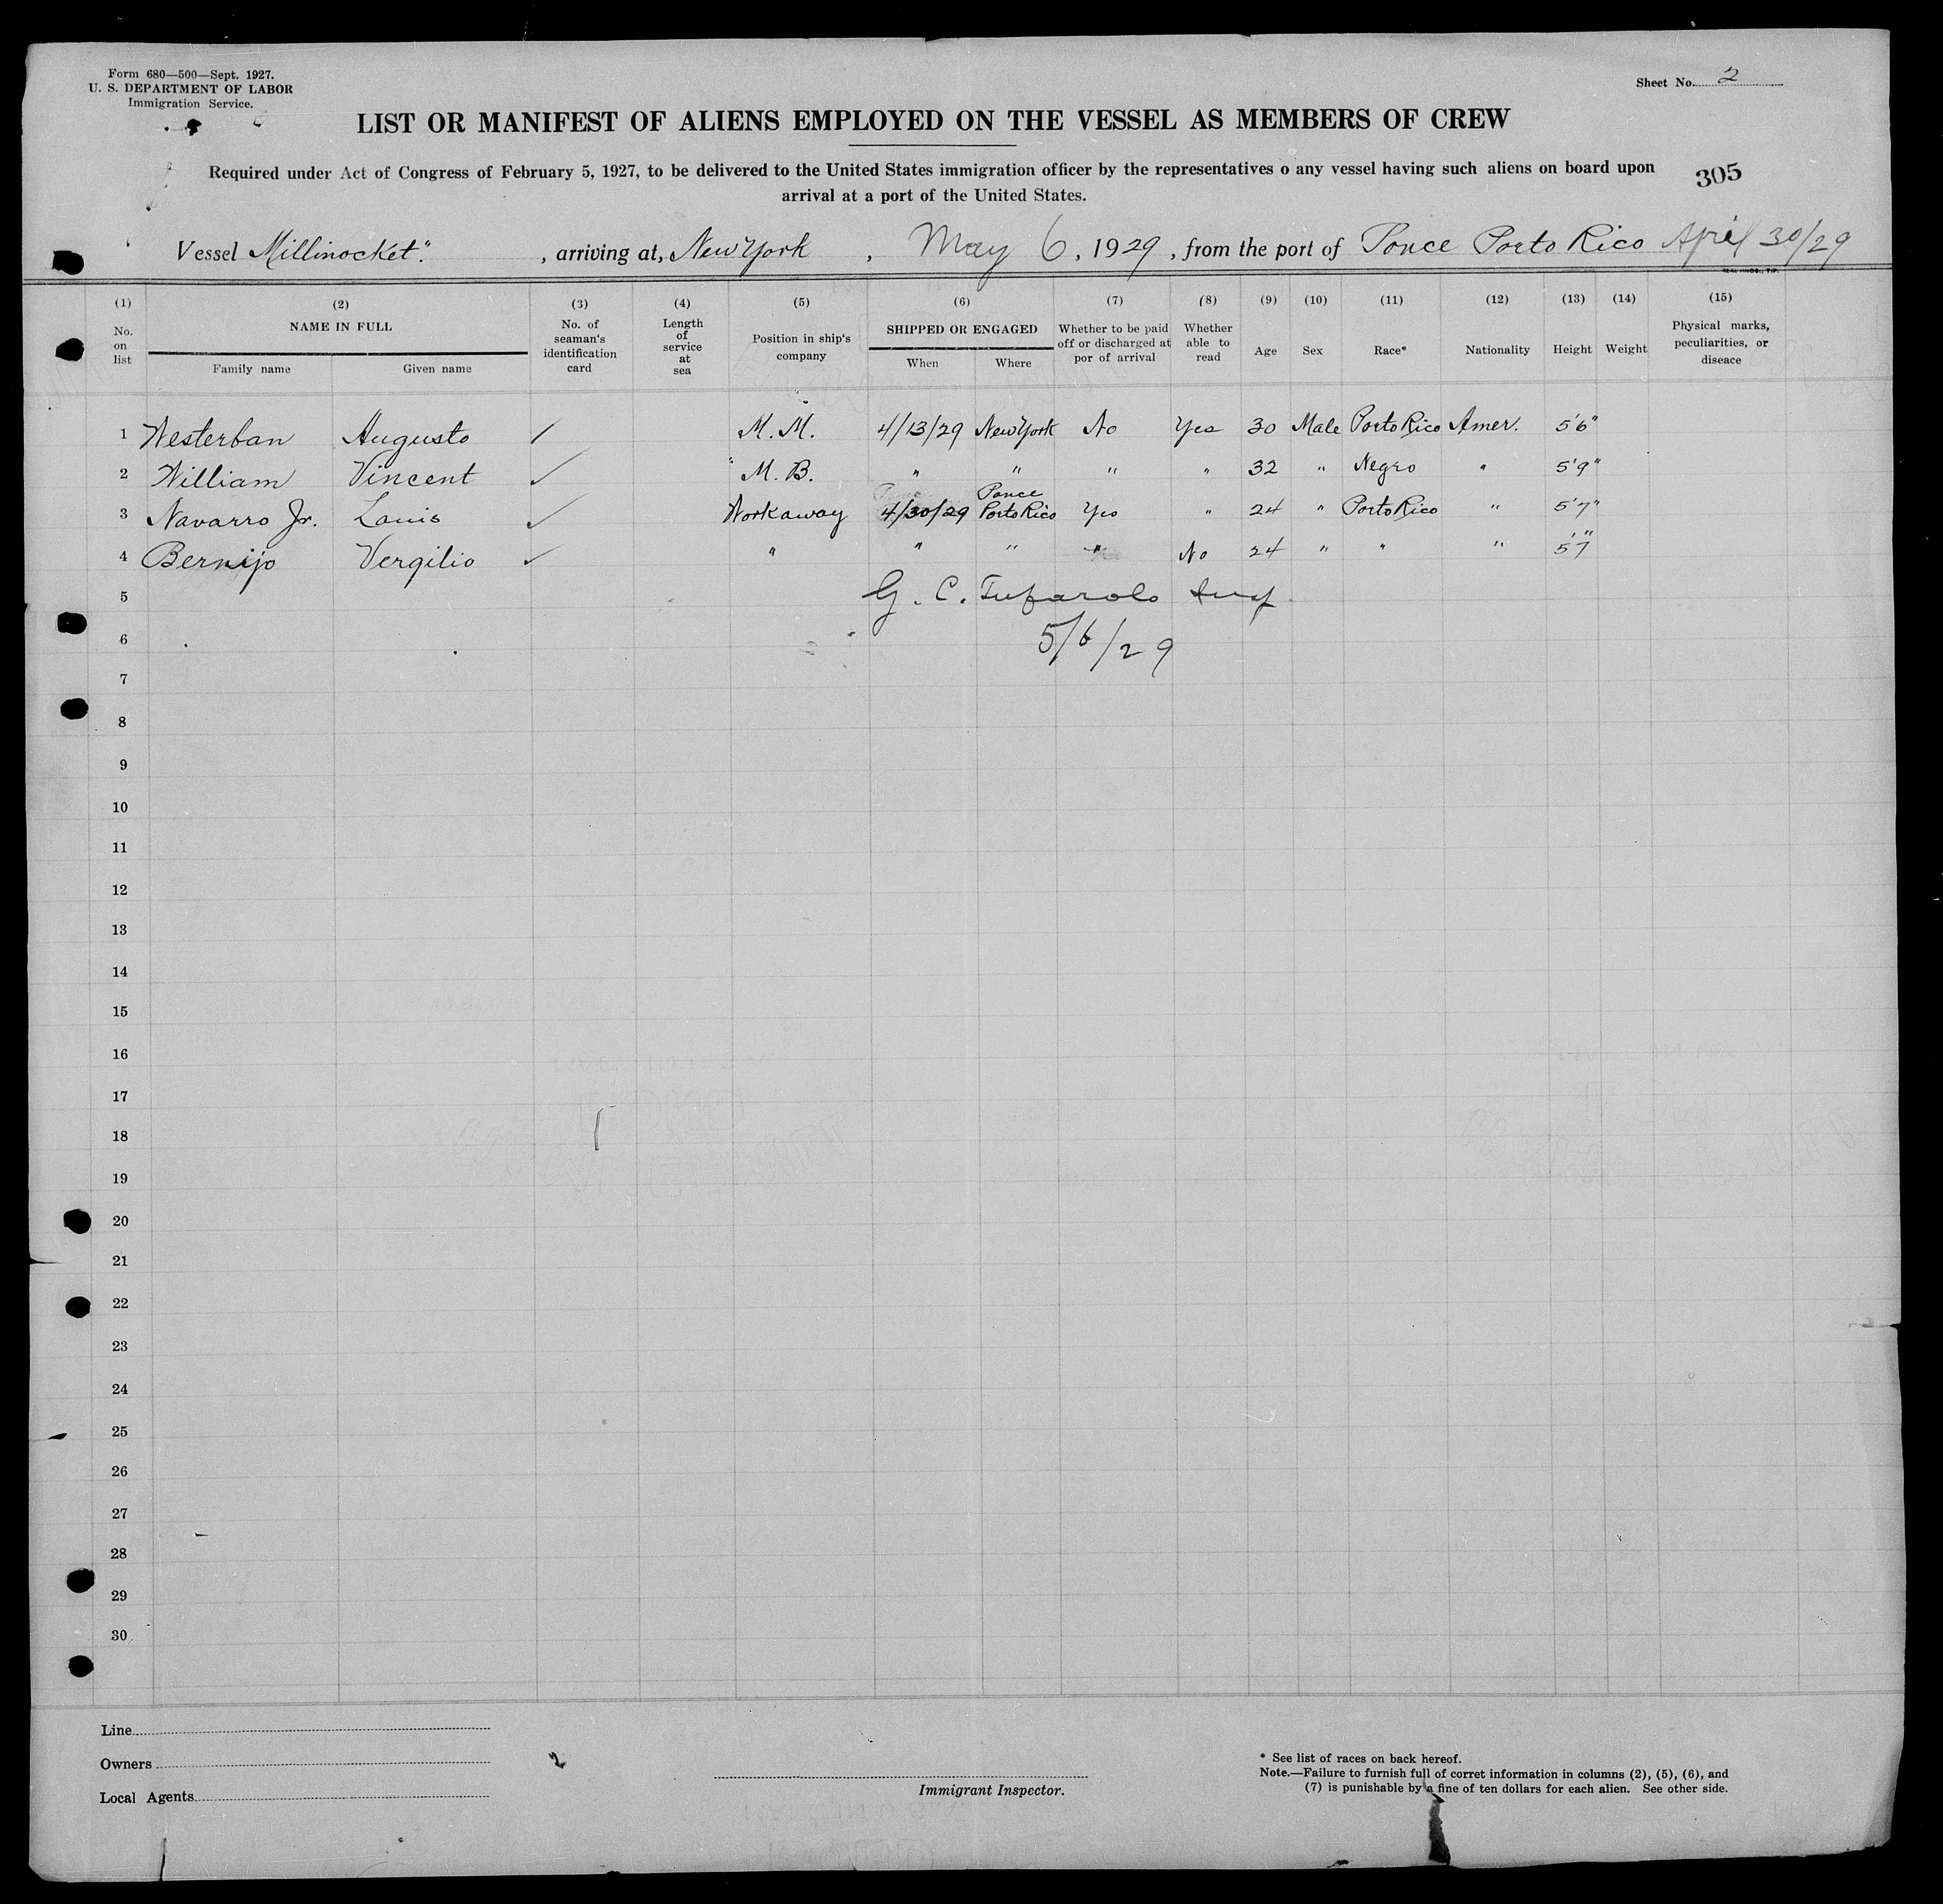 Form 680—500—Sept. 1927.
U. S. DEPARTMENT OF LABOR
Immigration Service.
Sheet No. 2
LIST OR MANIFEST OF ALIENS EMPLOYED ON THE VESSEL AS MEMBERS OF CREW
Required under Act of Congress of February 5, 1927, to be delivered to the United States immigration officer by the representatives o any vessel having such aliens on board upon
arrival at a port of the United States.
305
Vessel Millinocket." , arriving at, New York , May 6, 1929, from the port of Ponce Porto Rico April 30/29
(1) (2) (3) (4) (5) (6) (7) (8) (9) (10) (11) (12) (13) (14) (15)
No. on list NAME IN FULL Family name Given name No. of seaman's identification card Length of service at sea Position in ship's company SHIPPED OR ENGAGED When Where Whether to be paid off or discharged at por of arrival Whether able to read Age Sex Race* Nationality Height Weight Physical marks, peculiarities, or diseace
1 Westerban Augusto ✓ M. M. 4/13/29 New York No Yes 30 Male Porto Rico Amer. 5'6"
2 William Vincent ✓ M. B. " " " " 32 " Negro " 5'9"
3 Navarro Jr. Louis ✓ Workaway 4/30/29 Ponce Porto Rico Yes " 24 " Porto Rico " 5'7"
4 Bernijo Vergilio ✓ " " " " No 24 " " " 5'7"
5 G. C. Tufarolo Insp
6 5/6/29
7
8
9
10
11
12
13
14
15
16
17
18
19
20
21
22
23
24
25
26
27
28
29
30
Line
Owners
Local Agents
Immigrant Inspector.
* See list of races on back hereof.
Note.—Failure to furnish full of corret information in columns (2), (5), (6), and
(7) is punishable by a fine of ten dollars for each alien. See other side.